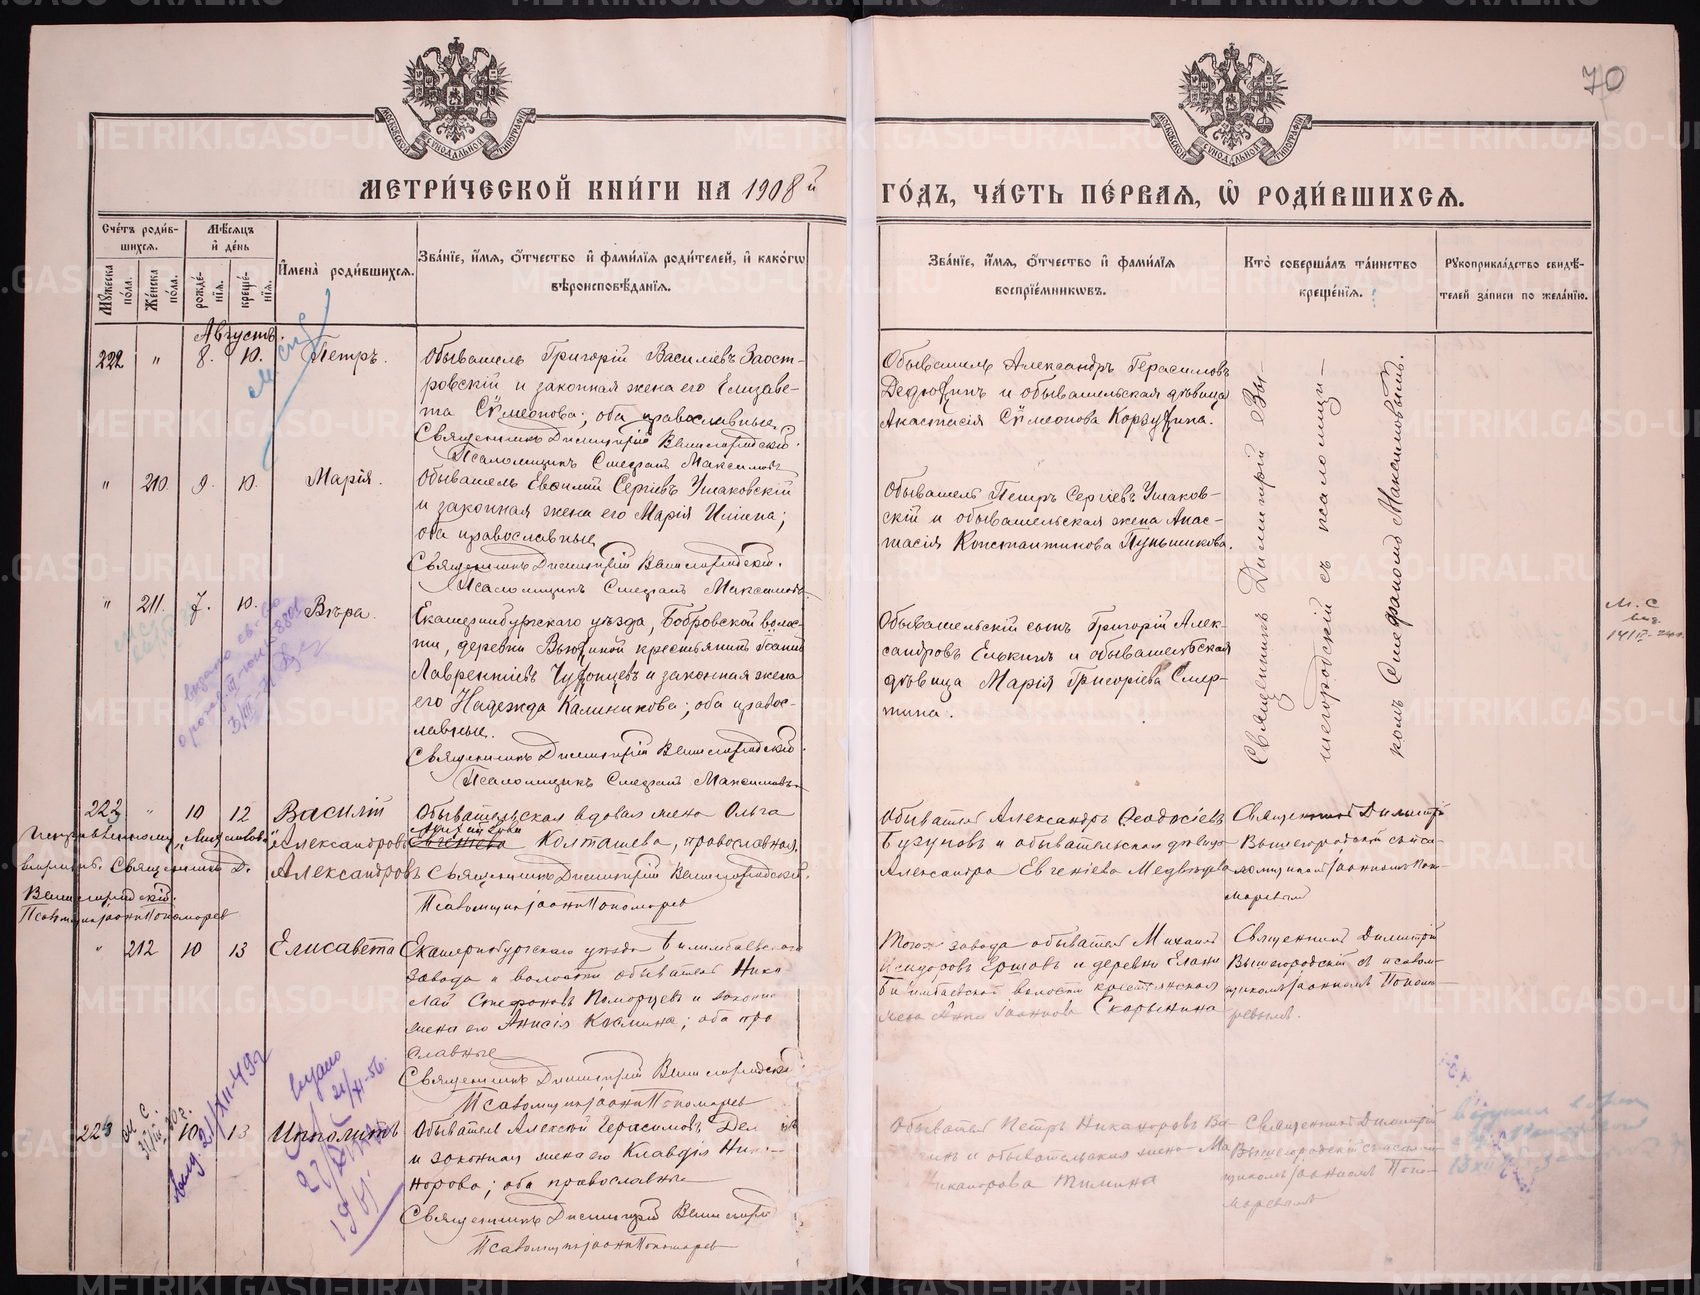 70
МЕТРИ́ЧЕСКОЙ КНИ́ГИ НА 1908й ГО́ДЪ, ЧА́СТЬ ПЕ́РВАЯ, Ѡ РОДИ́ВШИХСЯ.
Сче́тъ роди́в-
шихся.
Му́жеска по́ла.
Же́нска по́ла.
Мѣ́сяцъ
и́ де́нь
рожде́-
нїя.
креще́-
нїя.
И҆мена̀ роди́вшихся.
Зва́нїе, и҆́мя, ѻ҆́тчество и҆ фами́лїя роди́телей, и҆ како́гѡ
вѣроисповѣ́данїя.
Зва́нїе, и҆́мя, ѻ҆́тчество и҆ фами́лїя
воспрїе́мникѡвъ.
Кто̀ соверша́лъ та́инство
креще́нїя.
Рꙋкоприкла́дство свидѣ́-
телей за́писи по жела́нїю.
Августъ.
222 " 8. 10. Петръ.
Обыватель Григорій Василіевъ Заост-
ровскій и законная жена его Елизаве-
та Сѵмеонова; оба православные
Священникъ Димитрій Вышегородскій.
Псаломщикъ Стефанъ Максимовъ
Обыватель Александръ Герасимовъ
Дедюхинъ и обывательская дѣвица
Анастасія Сѵмеонова Корзухина.
Священникъ Димитрій Вы-
шегородскій съ псаломщи-
комъ Стефаномъ Максимовымъ.
" 210 9. 10. Марія.
Обыватель Евсилій Сергіевъ Ушаковскій
и законная жена его Марія Иліина;
оба православные
Священникъ Димитрій Вышегородскій.
Псаломщикъ Стефанъ Максимовъ
Обыватель Петръ Сергіевъ Ушаков-
скій и обывательская жена Анас-
тасія Константинова Пуньшикова.
" 211. 7. 10. Вѣра.
Екатеринбургскаго уѣзда, Бобровской волос-
ти, деревни Вьюхиной крестьянинъ Іоаннъ
Лаврентіевъ и законная жена
его Надежда Калиникова; оба правос-
лавные.
Священникъ Димитрій Вышегородскій.
Псаломщикъ Стефанъ Максимовъ
Обывательскій сынъ Григорій Алек-
сандровъ Елькинъ и обывательская
дѣвица Марія Григоріева Смер-
тина.
М. С
223 " 10 12 Василій
Александровъ
Александровъ
Обывательская вдовая жена Ольга
Евгеніева Колташева, православная.
Священникъ Димитрій Вышегородскій.
Псаломщикъ Іоаннъ Пономаревъ
Священникъ Д.
Вышегородскій.
Псаломщикъ Іоаннъ Пономаревъ
Обыватель Александръ Ѳеодосіевъ
Бузуновъ и обывательская дѣвица
Александра Евгеніева Медвѣдева
Священникъ Димитрій
Вышегородскій съ пса-
ломщикомъ Іоанномъ Поно-
маревымъ
" 212 10 13 Елисавета
Екатеринбургскаго уѣзда Билимбаевскаго
завода и волости обыватель Нико
лай Стефановъ Поморцевъ и законная
жена его Анисія Косьмина; оба пра
славные
Священникъ Димитрій Вышегородскій
Псаломщикъ Іоаннъ Пономаревъ
Того же завода обыватель Михаилъ
Исидоровъ Ершовъ и деревни Елани
Билимбаевской волости крестьянская
жена Анна Іоаннова Скорынина
Священникъ Димитрій
Вышегородскій съ псалом-
щикомъ Іоанномъ Понома-
ревымъ.
223 10 13 Ипполитъ
Обыватель Алексѣй Герасимовъ
и законная жена его Клавдія Ника-
норова; оба православные
Священникъ Димитрій Вышегород
Псаломщикъ Іоаннъ Пономаревъ
Обыватель Петръ Никаноровъ
и обывательская жена
Никанорова Тимина
Священникъ Димитрій
Вышегородскій съ псалом-
щикомъ Іоанномъ Поно-
маревымъ
METRIKI.GASO-URAL.RU